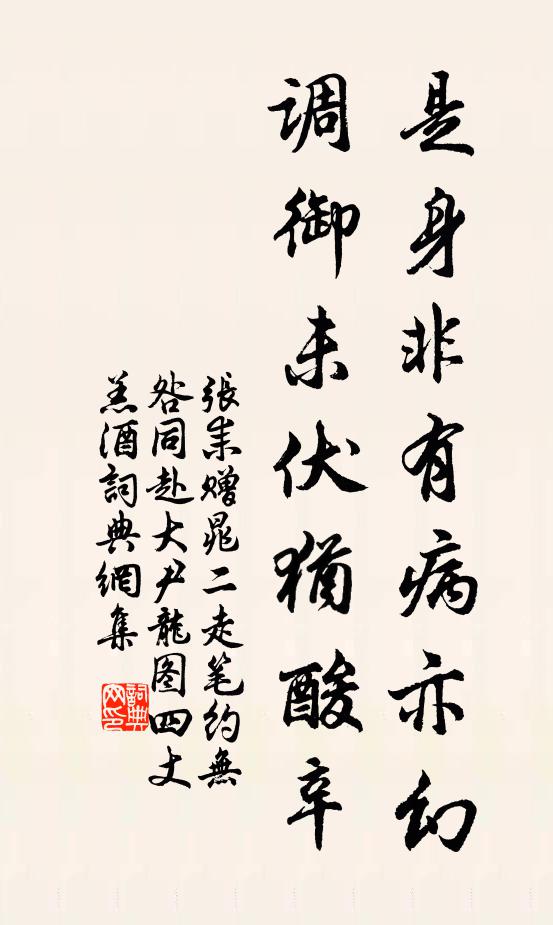 是身非有病亦幻
调御未伏猶酸辛
張耒赠晁二走笔约無
咎同赴大尹龍图四丈
羔酒詞典網集
詞典
网印